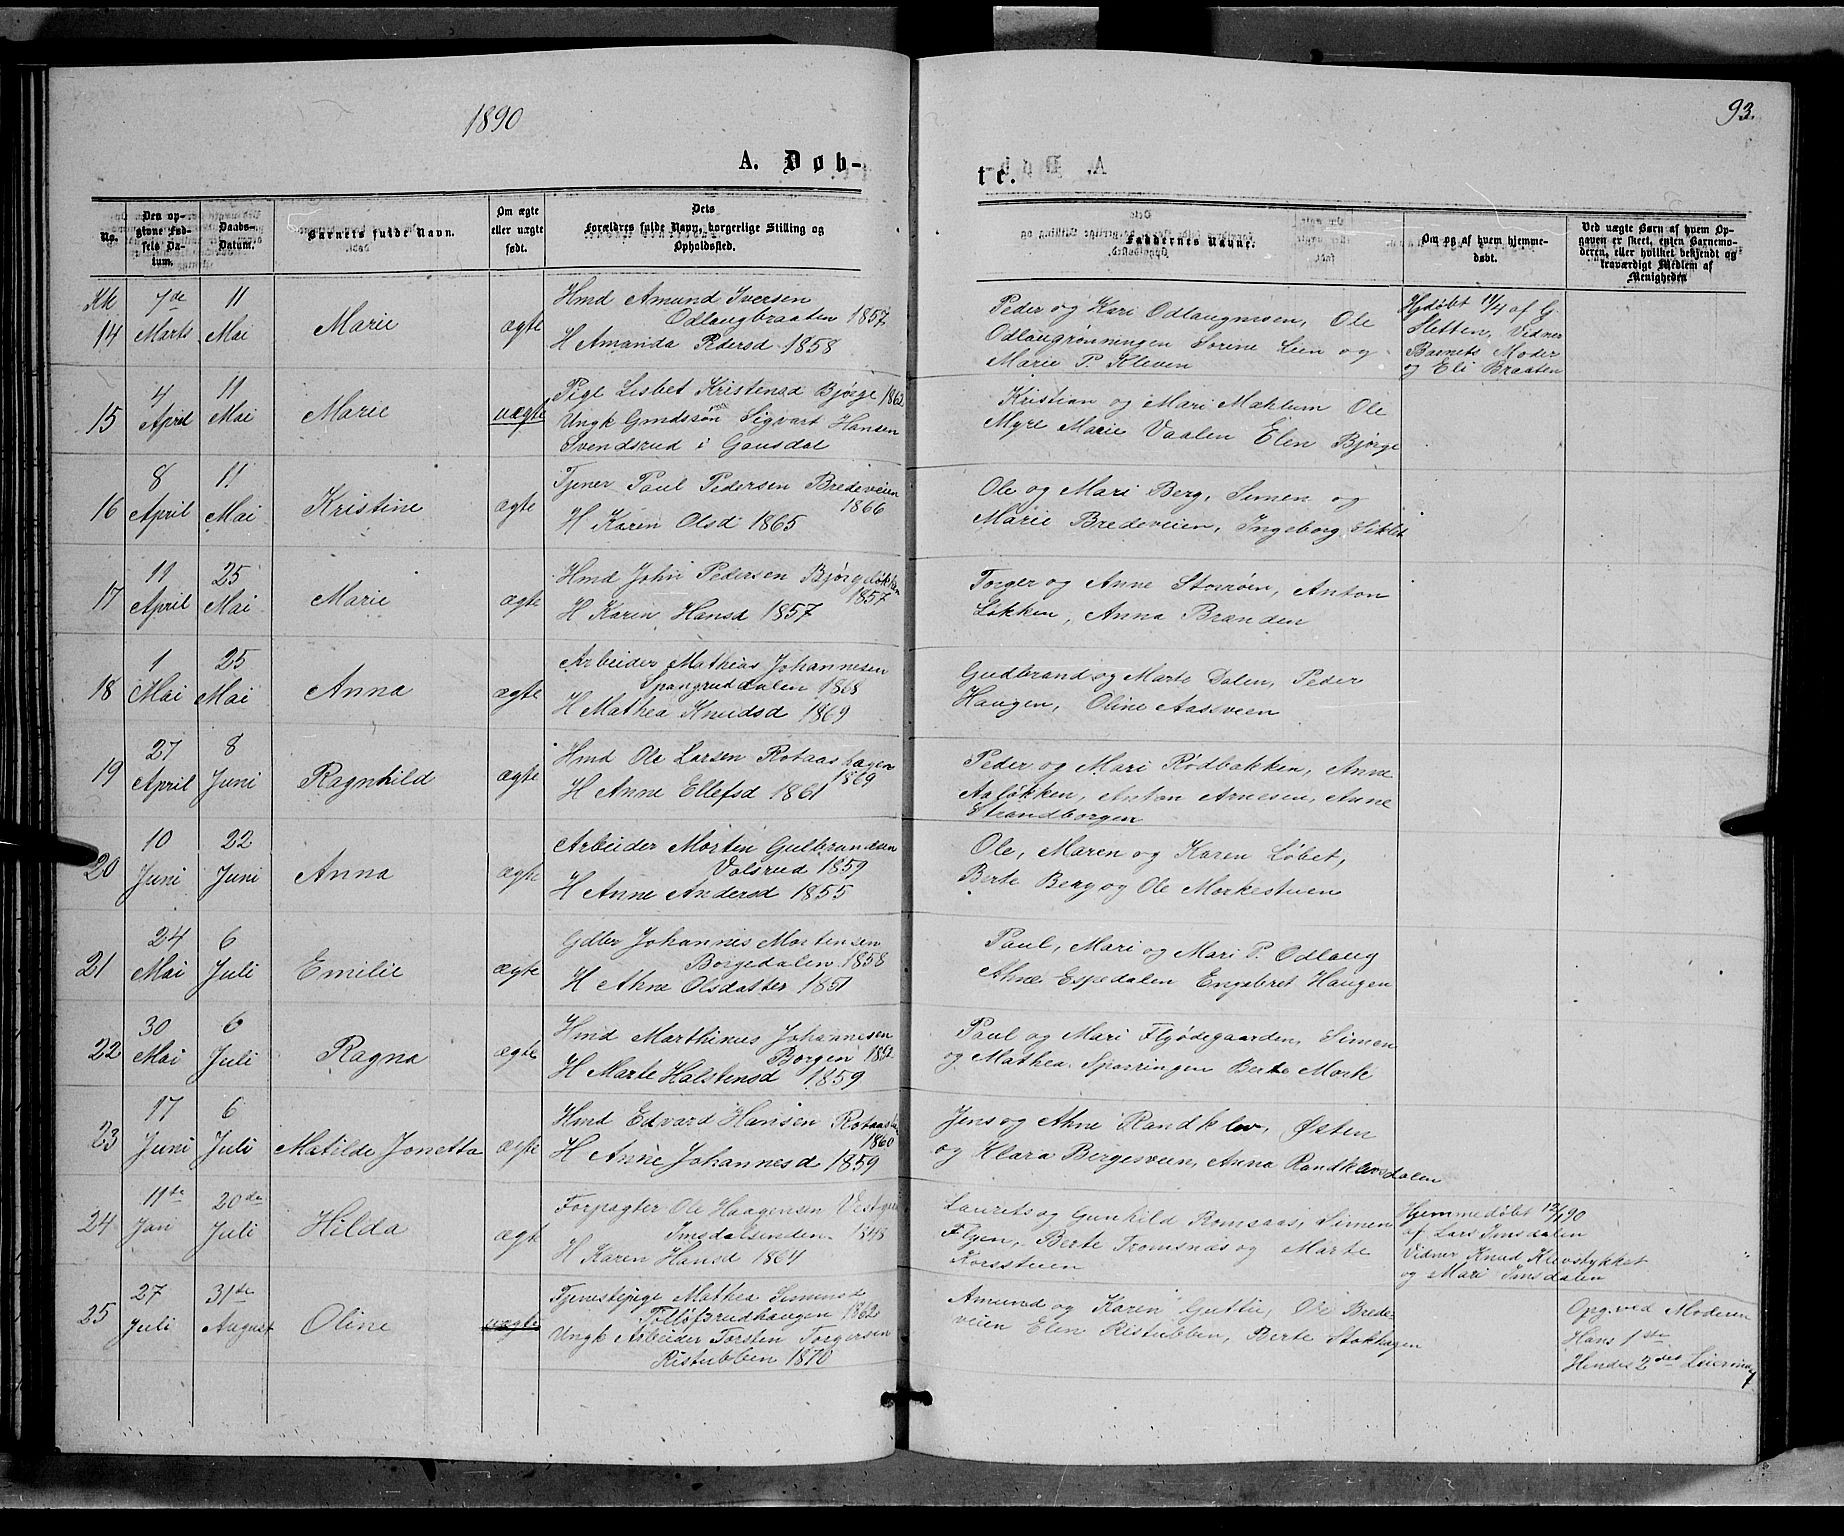 1890
93.
A. Døb-
te.
No.
Den op-
givne Fød-
sels Da-
tum.
Daabs-
Datum.
Barnets fulde Navn.
Om ægte
eller uægte
født.
Dets
Forældres fulde Navn, borgerlige Stilling og
Opholdssted.
Faddernes Navne.
Om og af hvem hjemme-
døbt.
Ved uægte Børn af hvem Op-
gaven er skeet, enten Barnemo-
deren, eller hvilket bekjendt og
troværdigt Medlem af
Menigheden
14
7de
Marts
11
Mai
Marie
ægte
Hmd Amund Iversen
Odlaugbraaten 1857
H Amanda Pdersd 1858
Peder og Kari Odlaugmoen, Ole
Odlaugrønningen Sorine Lien og
Marie P. Kleven
Hjdøbt 11/4 af G.
Sletten, Vidner
Barnets Moder
og Eli Braaten
15
4
April
11
Mai
Marie
uægte
Pige Lisbet Kristensd Bjørge 1862
Ungk Gmdssøn Sigvart Hansen
Svendsrud i Gausdal
Kristian og Mari Mahlum Ole
Myre Marie Vaalen Elen Bjørge
16
8
April
11
Mai
Kristine
ægte
Tjener Paul Pedersen Bredeveien
1866
H Karen Olsd 1865
Ole og Mari Berg, Simen og
Marie Bredeveien, Ingeborg
17
11
April
25
Mai
Marie
ægte
Hmd John Pedersen Bjørgeløkken
1857
H Karen Hansd 1857
Torger og Anne Stomoen, Anton
Løkken, Anna Brænden
18
1
Mai
25
Mai
Anna
ægte
Arbeider Mathias Johannesen
Spangruddalen 1868
H Mathea Knudsd 1869
Gudbrand og Marte Dalen, Peder
Haugen, Oline Aasveen
19
27
April
8
Juni
Ragnhild
ægte
Hmd Ole Larsen Rotaashagen
1869
H Anne Ellefsd 1861
Peder og Mari Rødbakken, Anne
Aaløkken, Anton Arnesen, Anne
Strandborgen
20
10
Juni
22
Juni
Anna
ægte
Arbeider Morten Gulbrandsen
Volsrud 1859
H Anne Andersd 1855
Ole, Maren og Karen Løbet,
Berte Berg og Ole Morkestuen
21
24
Mai
6
Juli
Emilie
ægte
Gdbr Johannes Mortensen
Borgedalen 1858
H Ahne Olsdatter 1851
Paul, Mari og Mari P. Odlaug
Ahne Espedalen Engebret Haugen
22
30
Mai
6
Juli
Ragna
ægte
Hmd Marthinus Johannesen
Borgen
H Marte Halstensd 1859
Paul og Mari Fløðegaarden, Simen
og Mathea Sparringen Berte Mork
23
17
Juni
6
Juli
Matilde Jonetta
ægte
Hmd Edvard Hansen
1860
H Anne Johannesd 1859
Jens og Ahne Randklev, Østen
og Klara Bergesveen, Anna Randklevsdalen
24
11te
Jan
20de
Juli
Hilda
ægt
Forpagter Ole Haagensen
Imsdalsenden 1848
H Karen Hansd 1864
Laurits og Gunhild Romsaas, Simen
Flyen, Berte Tromsnæs og Marte
Korsstuen
Hjemmedøbt 12/1 90
af Lars Imsdalen
Vidner Knud Klevstykket
og Mari Imsdalen
25
27
Juli
31te
August
Oline
uægte
Tjenestepige Mathea Simensd
Tolløfsrudhaugen 1862
Ungk Arbeider Torsten Torgersen
Ristubben 1870
Amund og Karen Guttu, Ole Brede-
veien Elen Ristubben, Berte Stokhagen
Opg. ved Moderen
Hans 1ste
Hendes 2det Leiermaal